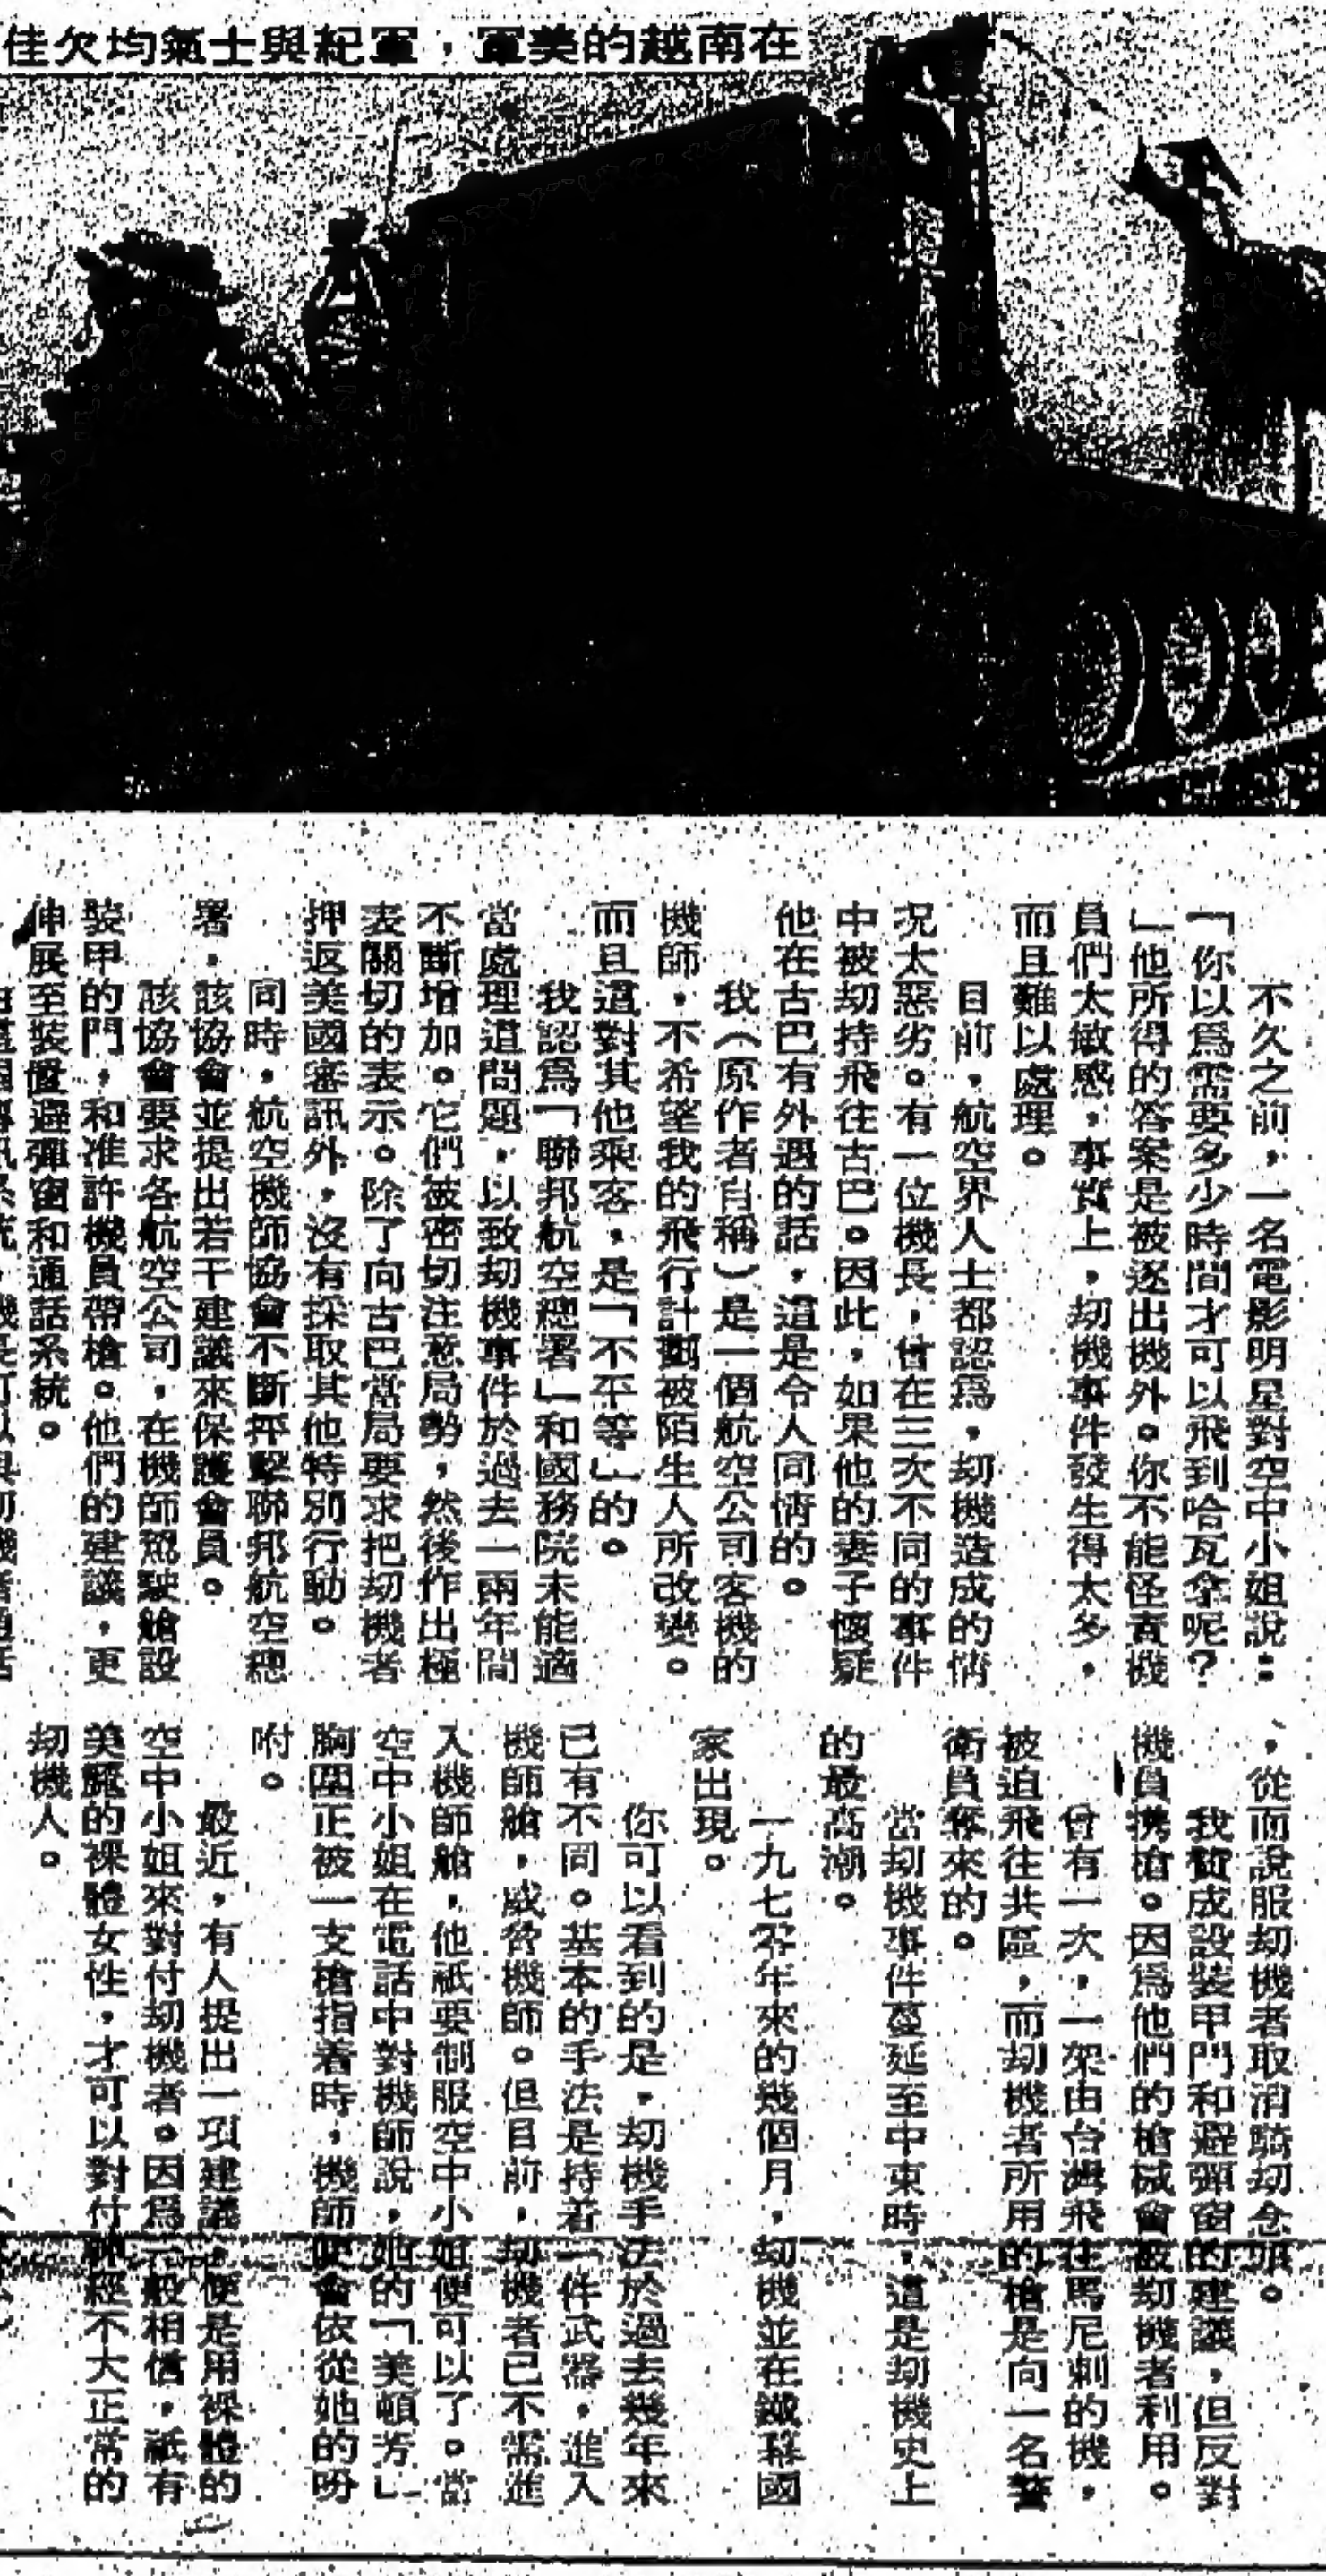 在南越的美軍，軍紀與士氣均欠佳
不久之前，一名電影明星對空中小姐說：
「你以爲需要多少時間才可以飛到哈瓦拿呢？
」他所得的答案是被逐出機外。你不能怪責機
員們太敏感，事實上，刧機事件發生得太多，
而且難以處理。
目前，航空界人士都認爲，刧機造成的情
況太惡劣。有一位機長，曾在三次不同的事件
中被刧持飛往古巴。因此，如果他的妻子懷疑
他在古巴有外遇的話，這是令人同情的。
我（原作者自稱）是一個航空公司客機的
機師，不希望我的飛行計劃被陌生人所改變。
而且這對其他乘客，是「不平等」的。
我認爲「聯邦航空總署」和國務院未能適
當處理這問題，以致刧機事件於過去一兩年間
不斷增加。它們被密切注意局勢，然後作出極
表關切的表示。除了向古巴當局要求把刧機者
押返美國審訊外，沒有採取其他特別行動。
同時，航空機師協會不斷抨擊聯邦航空總
署，該協會並提出若干建議來保護會員。
該協會要求各航空公司，在機師駕駛艙設
裝甲的門，和准許機員帶槍。他們的建議，更
伸展至裝置避彈窗和通話系統。
，從而說服刧機者取消騎刧念頭。
我贊成設裝甲門和避彈窗的建議，但反對
機員携槍。因爲他們的槍械會被刧機者利用。
曾有一次，一架由台灣飛往馬尼剌的機，
被迫飛往共區，而刧機者所用的槍是向一名警
衛員奪來的。
當刧機事件蔓延至中東時，這是刧機史上
的最高潮。
一九七零年來的幾個月，刧機並在鐵幕國
家出現。
你可以看到的是，刧機手法於過去幾年來
已有不同。基本的手法是持着一件武器，進入
機師艙，威脅機師。但目前，刧機者已不需進
入機師艙，他祇要制服空中小姐便可以了。當
空中小姐在電話中對機師說，她的「美頓芳」
胸圍正被一支槍指着時，機師便會依從她的吩
咐。
最近，有人提出一項建議，便是用裸體的
空中小姐來對付刧機者。因爲一般相信，祇有
美麗的裸體女性，才可以對付神經不大正常的
刧機人。